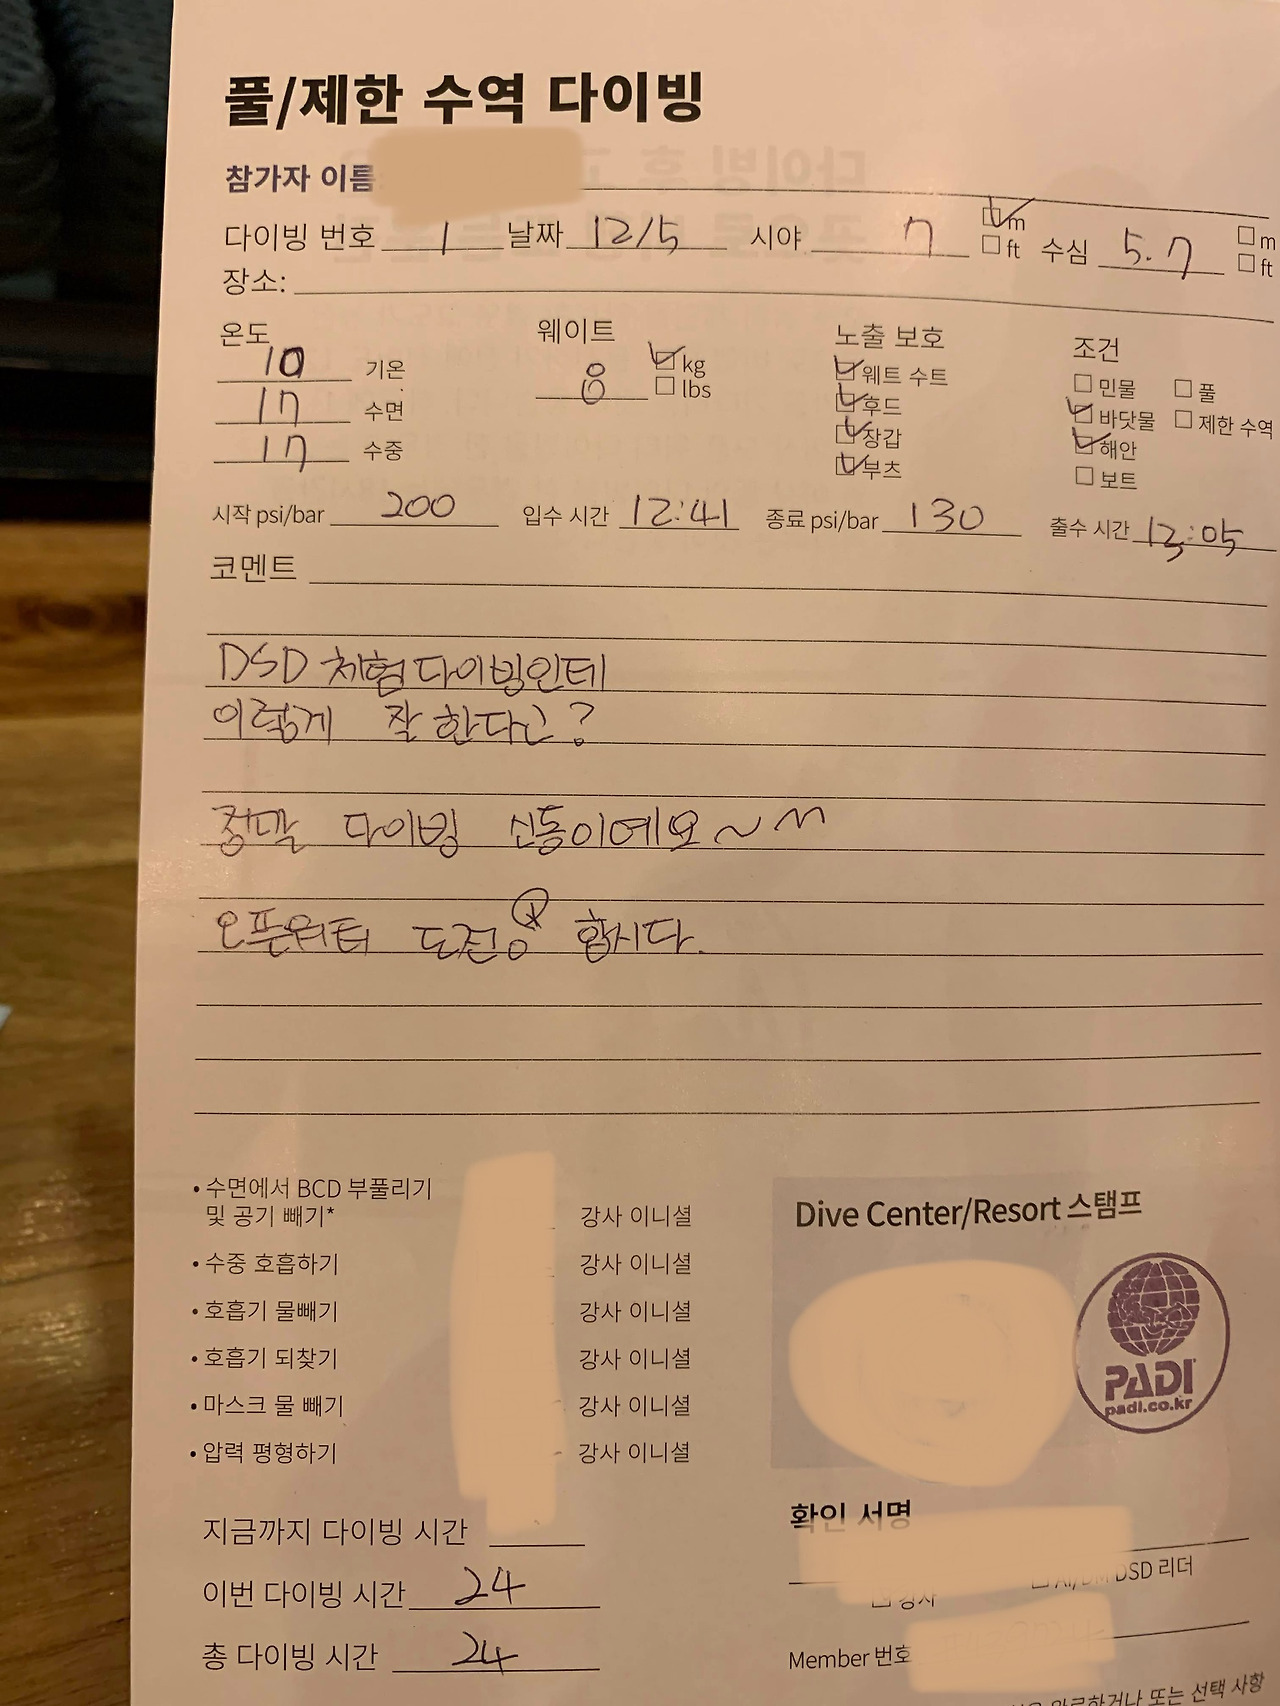 풀/제한 수역 다이빙
참가자 이름:
다이빙 번호 1 날짜 12/5 시야 7 m ft 수심 5.7 m ft
장소:
온도 웨이트 노출 보호 조건
10 기온 8 kg lbs 웨트 수트 민물 풀
17 수면 후드 바닷물 제한 수역
17 수중 장갑 해안
부츠 보트
시작 psi/bar 200 입수 시간 12:41 종료 psi/bar 130 출수 시간 13:05
코멘트
DSD 체험다이빙인데
이렇게 잘한다고?
정말 다이빙 신동이에요~
오픈워터 도전 합시다.
• 수면에서 BCD 부풀리기
및 공기 빼기* 강사 이니셜
• 수중 호흡하기 강사 이니셜
• 호흡기 물빼기 강사 이니셜
• 호흡기 되찾기 강사 이니셜
• 마스크 물 빼기 강사 이니셜
• 압력 평형하기 강사 이니셜
Dive Center/Resort 스탬프
PADI
padi.co.kr
지금까지 다이빙 시간
이번 다이빙 시간 24
총 다이빙 시간 24
확인 서명
강사 DSD 리더
Member 번호
완료하거나 또는 선택 사항